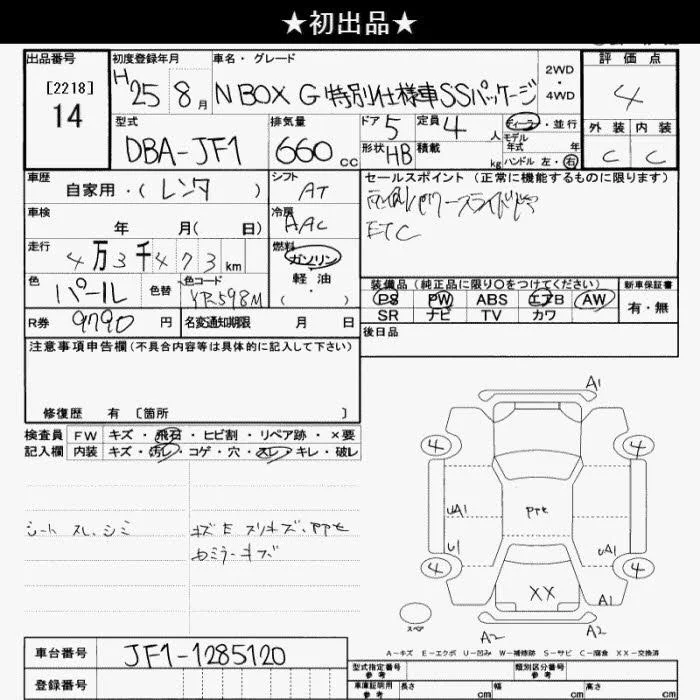 ★初出品★
出品番号 初度登録年月 車名・グレード 2WD・4WD 評価点
[2218]
14
H25 8月 N BOX G 特別仕様車SSパッケージ 4
型式 排気量 ドア 定員 ディーラー・並行 外装 内装
DBA-JF1 660cc 5 4人 モデル年式 年 C C
形状 HB 積載 kg ハンドル 左・右
車歴 シフト セールスポイント (正常に機能するものに限ります)
自家用・(レンタ) AT
車検 冷房
年 月( 日) AAC ETC
走行 燃料
4万3千473km ガソリン
軽油
色 色替 色コード ( ・ )
パール YR598M
装備品(純正品に限り〇をつけてください) 新車保証書
PS PW ABS エアB AW 有・無
SR ナビ TV カワ
R券 9790円 名変通知期限 月 日
後日品
注意事項申告欄(不具合内容等は具体的に記入して下さい)
修復歴 有 〔箇所 〕
検査員 FW キズ・飛石・ヒビ割・リペア跡・×要
記入欄 内装 キズ・汚レ・コゲ・穴・スレ・キレ・破レ
シート スレ、シミ
A1
4 4
UA1 PPE
U1 UA1
4 4
XX
A1
スペア
A2 A2
A-キズ E-エクボ U-凹み W-補修跡 S-サビ C-腐食 XX-交換済
車台番号 JF1-1285120
登録番号
型式指定番号 参考 類別区分番号 参考
車庫証明用 参考 長さ cm 幅 cm 高さ cm